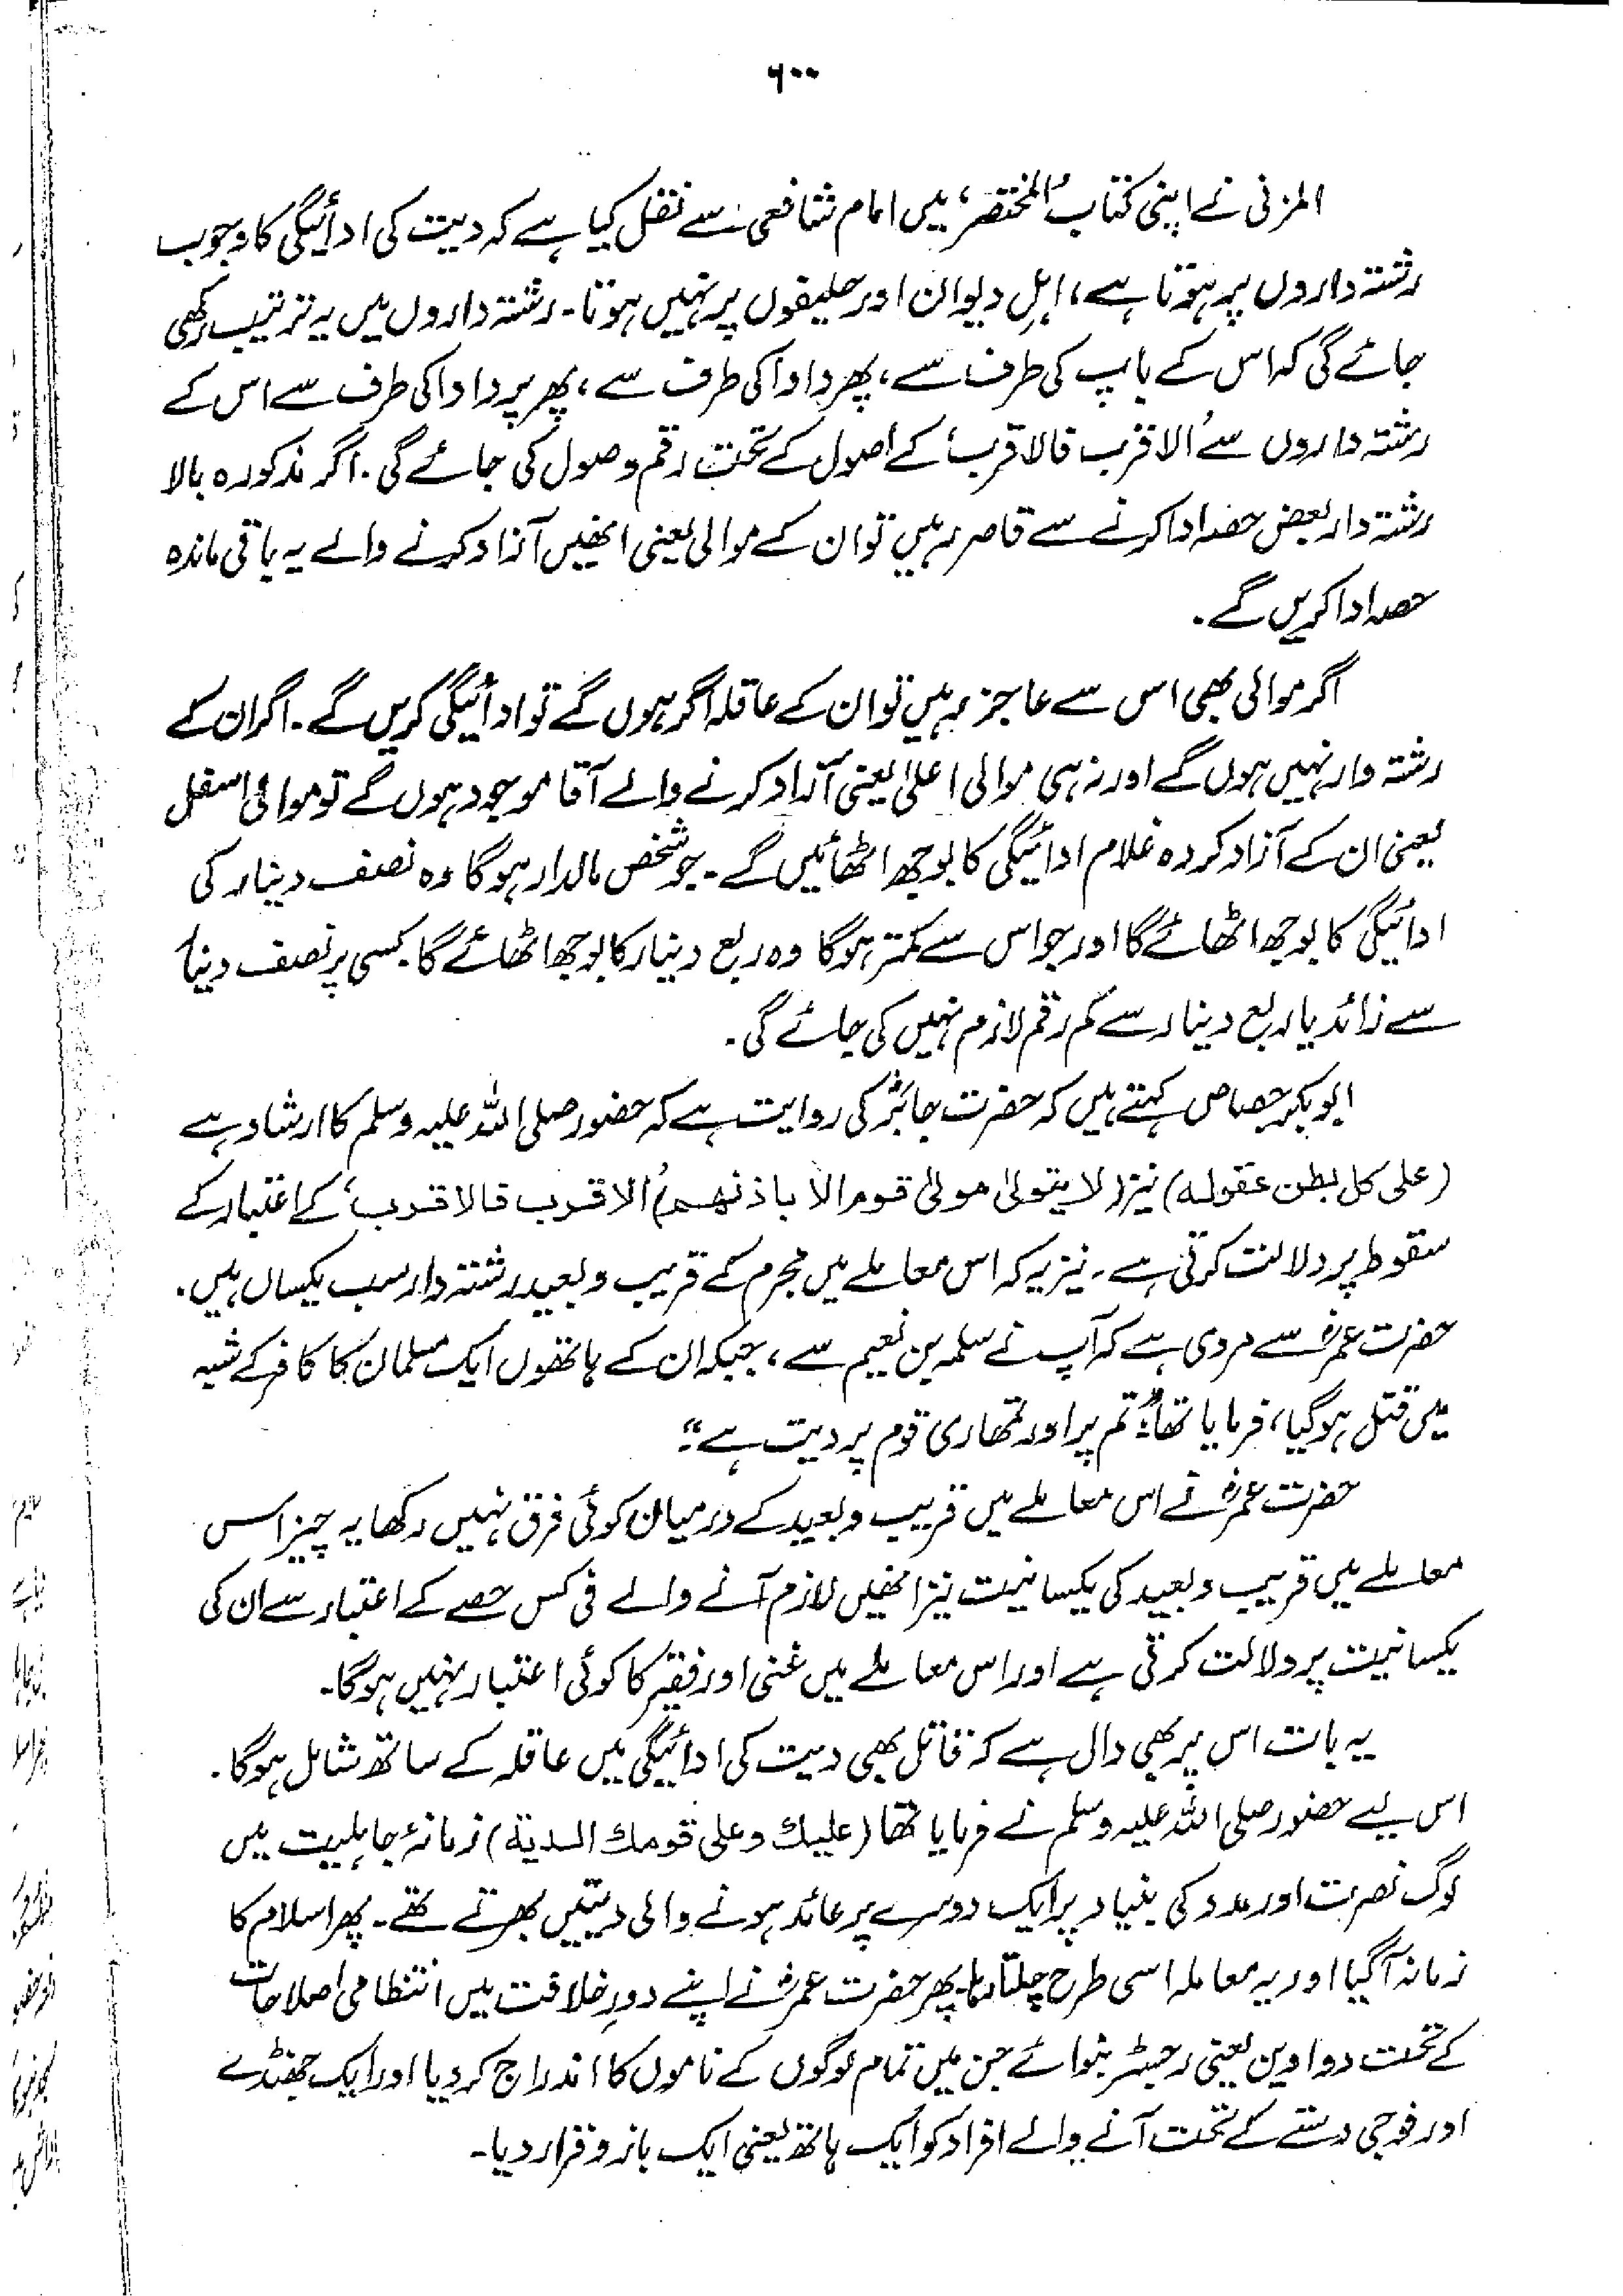 ۶۰۰
المزنی نے اپنی کتاب ’المختصر‘ میں امام شافعی سے نقل کیا ہے کہ دیت کی ادائیگی کا وجوب
رشتہ داروں پر ہوتا ہے، اہلِ دیوان اور حلیفوں پر نہیں ہوتا۔ رشتہ داروں میں یہ ترتیب رکھی
جائے گی کہ اس کے باپ کی طرف سے، پھر دادا کی طرف سے، پھر پردادا کی طرف سے اس کے
رشتہ داروں سے ’الاقرب فالاقرب‘ کے اصول کے تحت رقم وصول کی جائے گی۔ اگر مذکورہ بالا
رشتہ دار بعض حصہ ادا کرنے سے قاصر رہیں تو ان کے موالی یعنی انھیں آزاد کرنے والے یہ باقی ماندہ
حصہ ادا کریں گے۔
اگر موالی بھی اس سے عاجز رہیں تو ان کے عاقلہ اگر ہوں گے تو ادائیگی کریں گے۔ اگر ان کے
رشتہ دار نہیں ہوں گے اور نہ ہی موالی اعلیٰ یعنی آزاد کرنے والے آقا موجود ہوں گے تو موالی اسفل
یعنی ان کے آزاد کردہ غلام ادائیگی کا بوجھ اٹھائیں گے۔ جو شخص مالدار ہوگا وہ نصف دینار کی
ادائیگی کا بوجھ اٹھائے گا اور جو اس سے کمتر ہوگا وہ ربع دینار کا بوجھ اٹھائے گا۔ کسی پر نصف دینار
سے زائد یا ربع دینار سے کم رقم لازم نہیں کی جائے گی۔
ابوبکر جصاص کہتے ہیں کہ حضرت جابرؓ کی روایت ہے کہ حضور صلی اللہ علیہ وسلم کا ارشاد ہے
(علی کل بطن عقولہ) نیز (لا یتولیٰ مولیٰ قوم الا باذنھم) ’الاقرب فالاقرب‘ کے اعتبار کے
سقوط پر دلالت کرتی ہے۔ نیز یہ کہ اس معاملے میں مجرم کے قریب و بعید رشتہ دار سب یکساں ہیں۔
حضرت عمرؓ سے مروی ہے کہ آپ نے سلمہ بن نعیم سے، جبکہ ان کے ہاتھوں ایک مسلمان کا کافر کے شبہ
میں قتل ہوگیا، فرمایا تھا: ”تم پر اور تمھاری قوم پر دیت ہے“۔
حضرت عمرؓ نے اس معاملے میں قریب و بعید کے درمیان کوئی فرق نہیں رکھا یہ چیز اس
معاملے میں قریب و بعید کی یکسانیت نیز انھیں لازم آنے والے فی کس حصے کے اعتبار سے ان کی
یکسانیت پر دلالت کرتی ہے اور اس معاملے میں غنی اور فقیر کا کوئی اعتبار نہیں ہوگا۔
یہ بات اس پر بھی دال ہے کہ قاتل بھی دیت کی ادائیگی میں عاقلہ کے ساتھ شامل ہوگا۔
اس لیے حضور صلی اللہ علیہ وسلم نے فرمایا تھا (علیك وعلی قومك الدیة) زمانۂ جاہلیت میں
لوگ نصرت اور مدد کی بنیاد پر ایک دوسرے پر عائد ہونے والی دیتیں بھرتے تھے۔ پھر اسلام کا
زمانہ آگیا اور یہ معاملہ اسی طرح چلتا رہا۔ پھر حضرت عمرؓ نے اپنے دورِ خلافت میں انتظامی اصلاحات
کے تحت دواوین یعنی رجسٹر بنوائے جن میں تمام لوگوں کے ناموں کا اندراج کردیا اور ایک جھنڈے
اور فوجی دستے کے تحت آنے والے افراد کو ایک ہاتھ یعنی ایک بازو قرار دیا۔